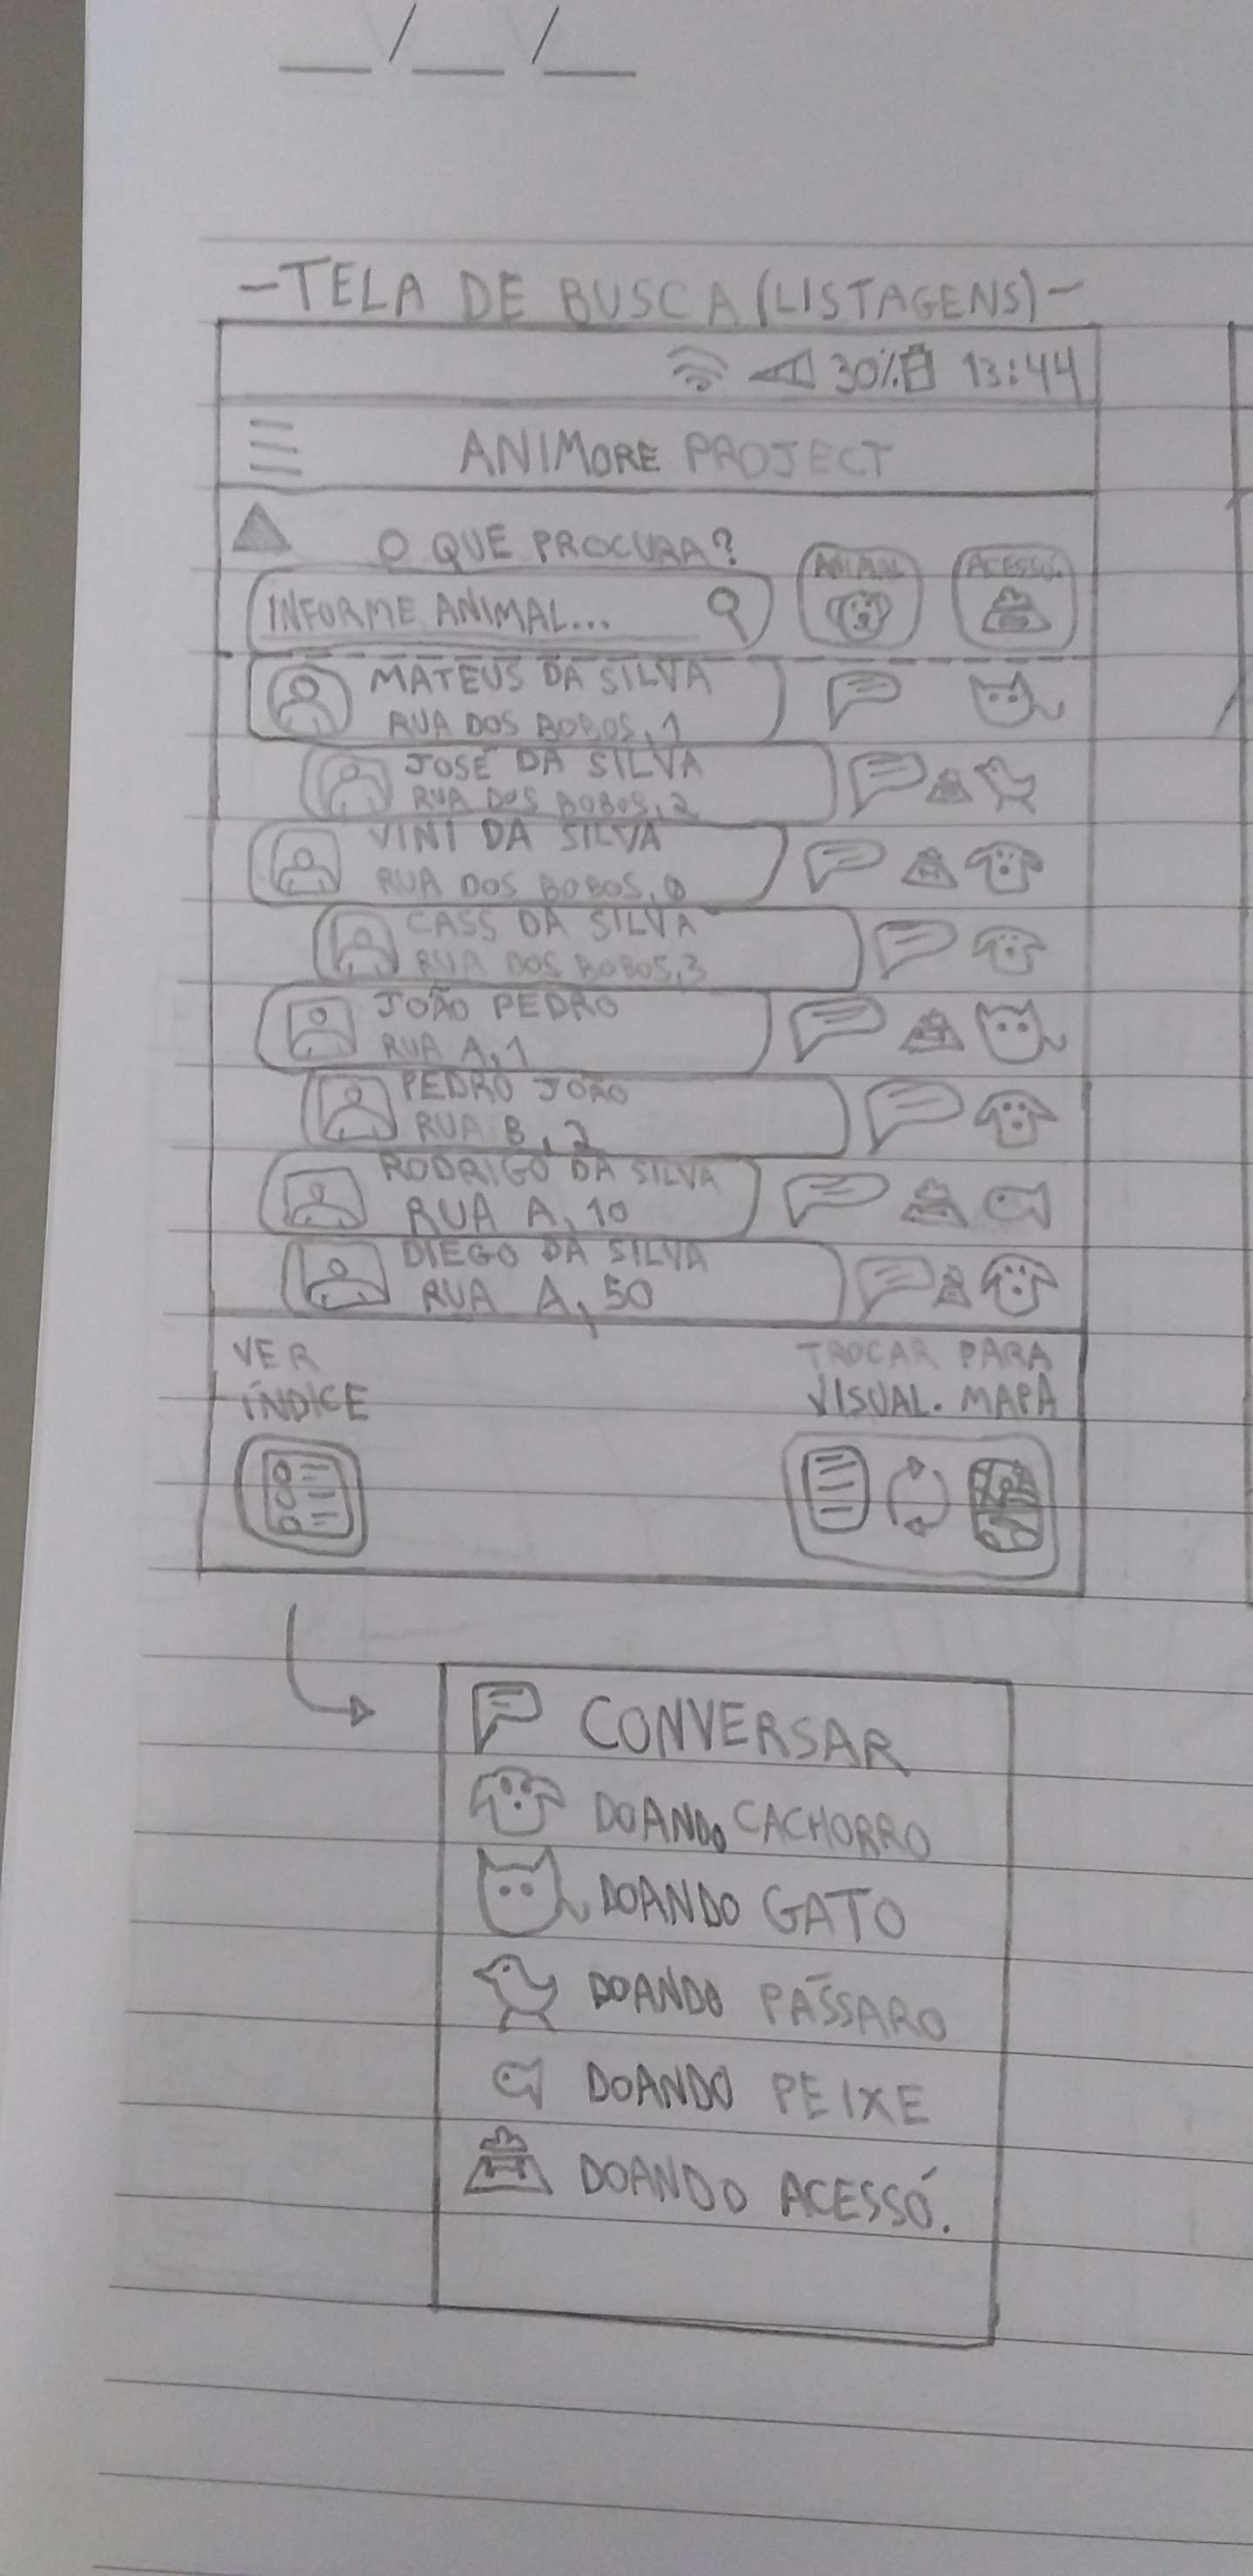 __/__/__
-TELA DE BUSCA (LISTAGENS)-
30% 13:44
ANIMORE PROJECT
O QUE PROCURA?
ANIMAL
ACESSÓ.
INFORME ANIMAL...
MATEUS DA SILVA
RUA DOS BOBOS, 1
JOSÉ DA SILVA
RUA DOS BOBOS, 2
VINI DA SILVA
RUA DOS BOBOS, 0
CASS DA SILVA
RUA DOS BOBOS, 3
JOÃO PEDRO
RUA A, 1
PEDRO JOÃO
RUA B, 2
RODRIGO DA SILVA
RUA A, 10
DIEGO DA SILVA
RUA A, 50
VER
ÍNDICE
TROCAR PARA
VISUAL. MAPA
CONVERSAR
DOANDO CACHORRO
DOANDO GATO
DOANDO PÁSSARO
DOANDO PEIXE
DOANDO ACESSÓ.